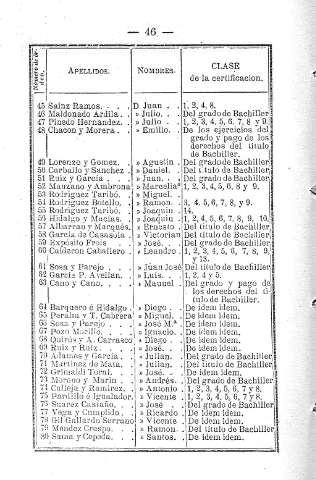 — 46 —
Número de orden. APELLIDOS. NOMBRES. CLASE de la certificacion.
45 Sainz Ramos. . . . D Juan . . 1, 2, 4, 8.
46 Maldonado Ardila. . . » Julio. . . Del grado de Bachiller
47 Pinedo Hernandez. . . » Julio. . 1, 2, 3, 4, 5, 6, 7, 8 y 9.
48 Chacon y Morera . . . » Emilio. . De los ejercicios del
grado y pago de los
derechos del título
de Bachiller.
49 Lorenzo y Gomez. . » Agustin . Del grado de Bachiller.
50 Carballo y Sanchez . » Daniel. . Del título de Bachiller.
51 Ruiz y García . . . » Juan . . Del grado de Bachiller.
52 Manzano y Ambrona » Marcelina 1, 2, 3, 4, 5, 6, 8 y 9.
53 Rodriguez Taribó. . » Miguel. .
54 Rodriguez Botello. . » Ramon. . 3, 4, 5, 6, 7, 8, y 9.
55 Rodriguez Taribó. . » Joaquin . 14.
56 Hidalgo y Macías. . » Joaquin . 1, 2, 4, 5, 6, 7, 8, 9, 10,
57 Albarran y Marqués. » Ernesto . Del título de Bachiller.
58 García de Casasola . » Victorian Del título de Bachiller.
59 Expósito Freis . . » José. . . Del grado de Bachiller
60 Calderon Caballero . » Leandro . 1, 2, 3, 4, 5, 6, 7, 8, 9,
y 13.
61 Sosa y Parejo . . . » Juan José Del título de Bachiller
62 García P. Avellan. . » Luis. . . 1, 2, 4 y 5.
63 Cano y Cano. . . . » Manuel . Del grado y pago de
los derechos del título
de Bachiller.
64 Barquero é Hidalgo. » Diego . . De idem idem.
65 Peralta y T. Cabrera » Miguel. . De idem idem.
66 Sosa y Parejo . . . » José M.ª . De idem idem.
67 Pozo Morillo. . . . » Ignacio. . De idem idem.
68 Quirós y A. Carrasco » Diego . . De idem idem.
69 Ruiz y Ruiz. . . . » José. . . De idem idem.
70 Adames y García. . » Julian. . Del grado de Bachiller.
71 Martinez de Mata. . » Julian. . Del título de Bachiller
72 Grimaldi Torni. . . » José. . . De idem idem.
73 Moreno y Marin . . » Andrés. . Del grado de Bachiller.
74 Calleja y Ramirez. . » Antonio . 1, 2, 3, 4, 5, 6, 7 y 8.
75 Pardillo é Igualador. » Vicente . 1, 2, 4, 5, 6, 7 y 8.
76 Suarez Castaño. . . » José . . Del grado de Bachiller
77 Vega y Cumplido. . » Ricardo . De idem idem.
78 Gil Gallardo Serrano » Vicente . De idem idem.
79 Mendez Crespo. . . » Ramon. . Del título de Bachiller
80 Sama y Cepeda. . . » Santos. . De idem idem.